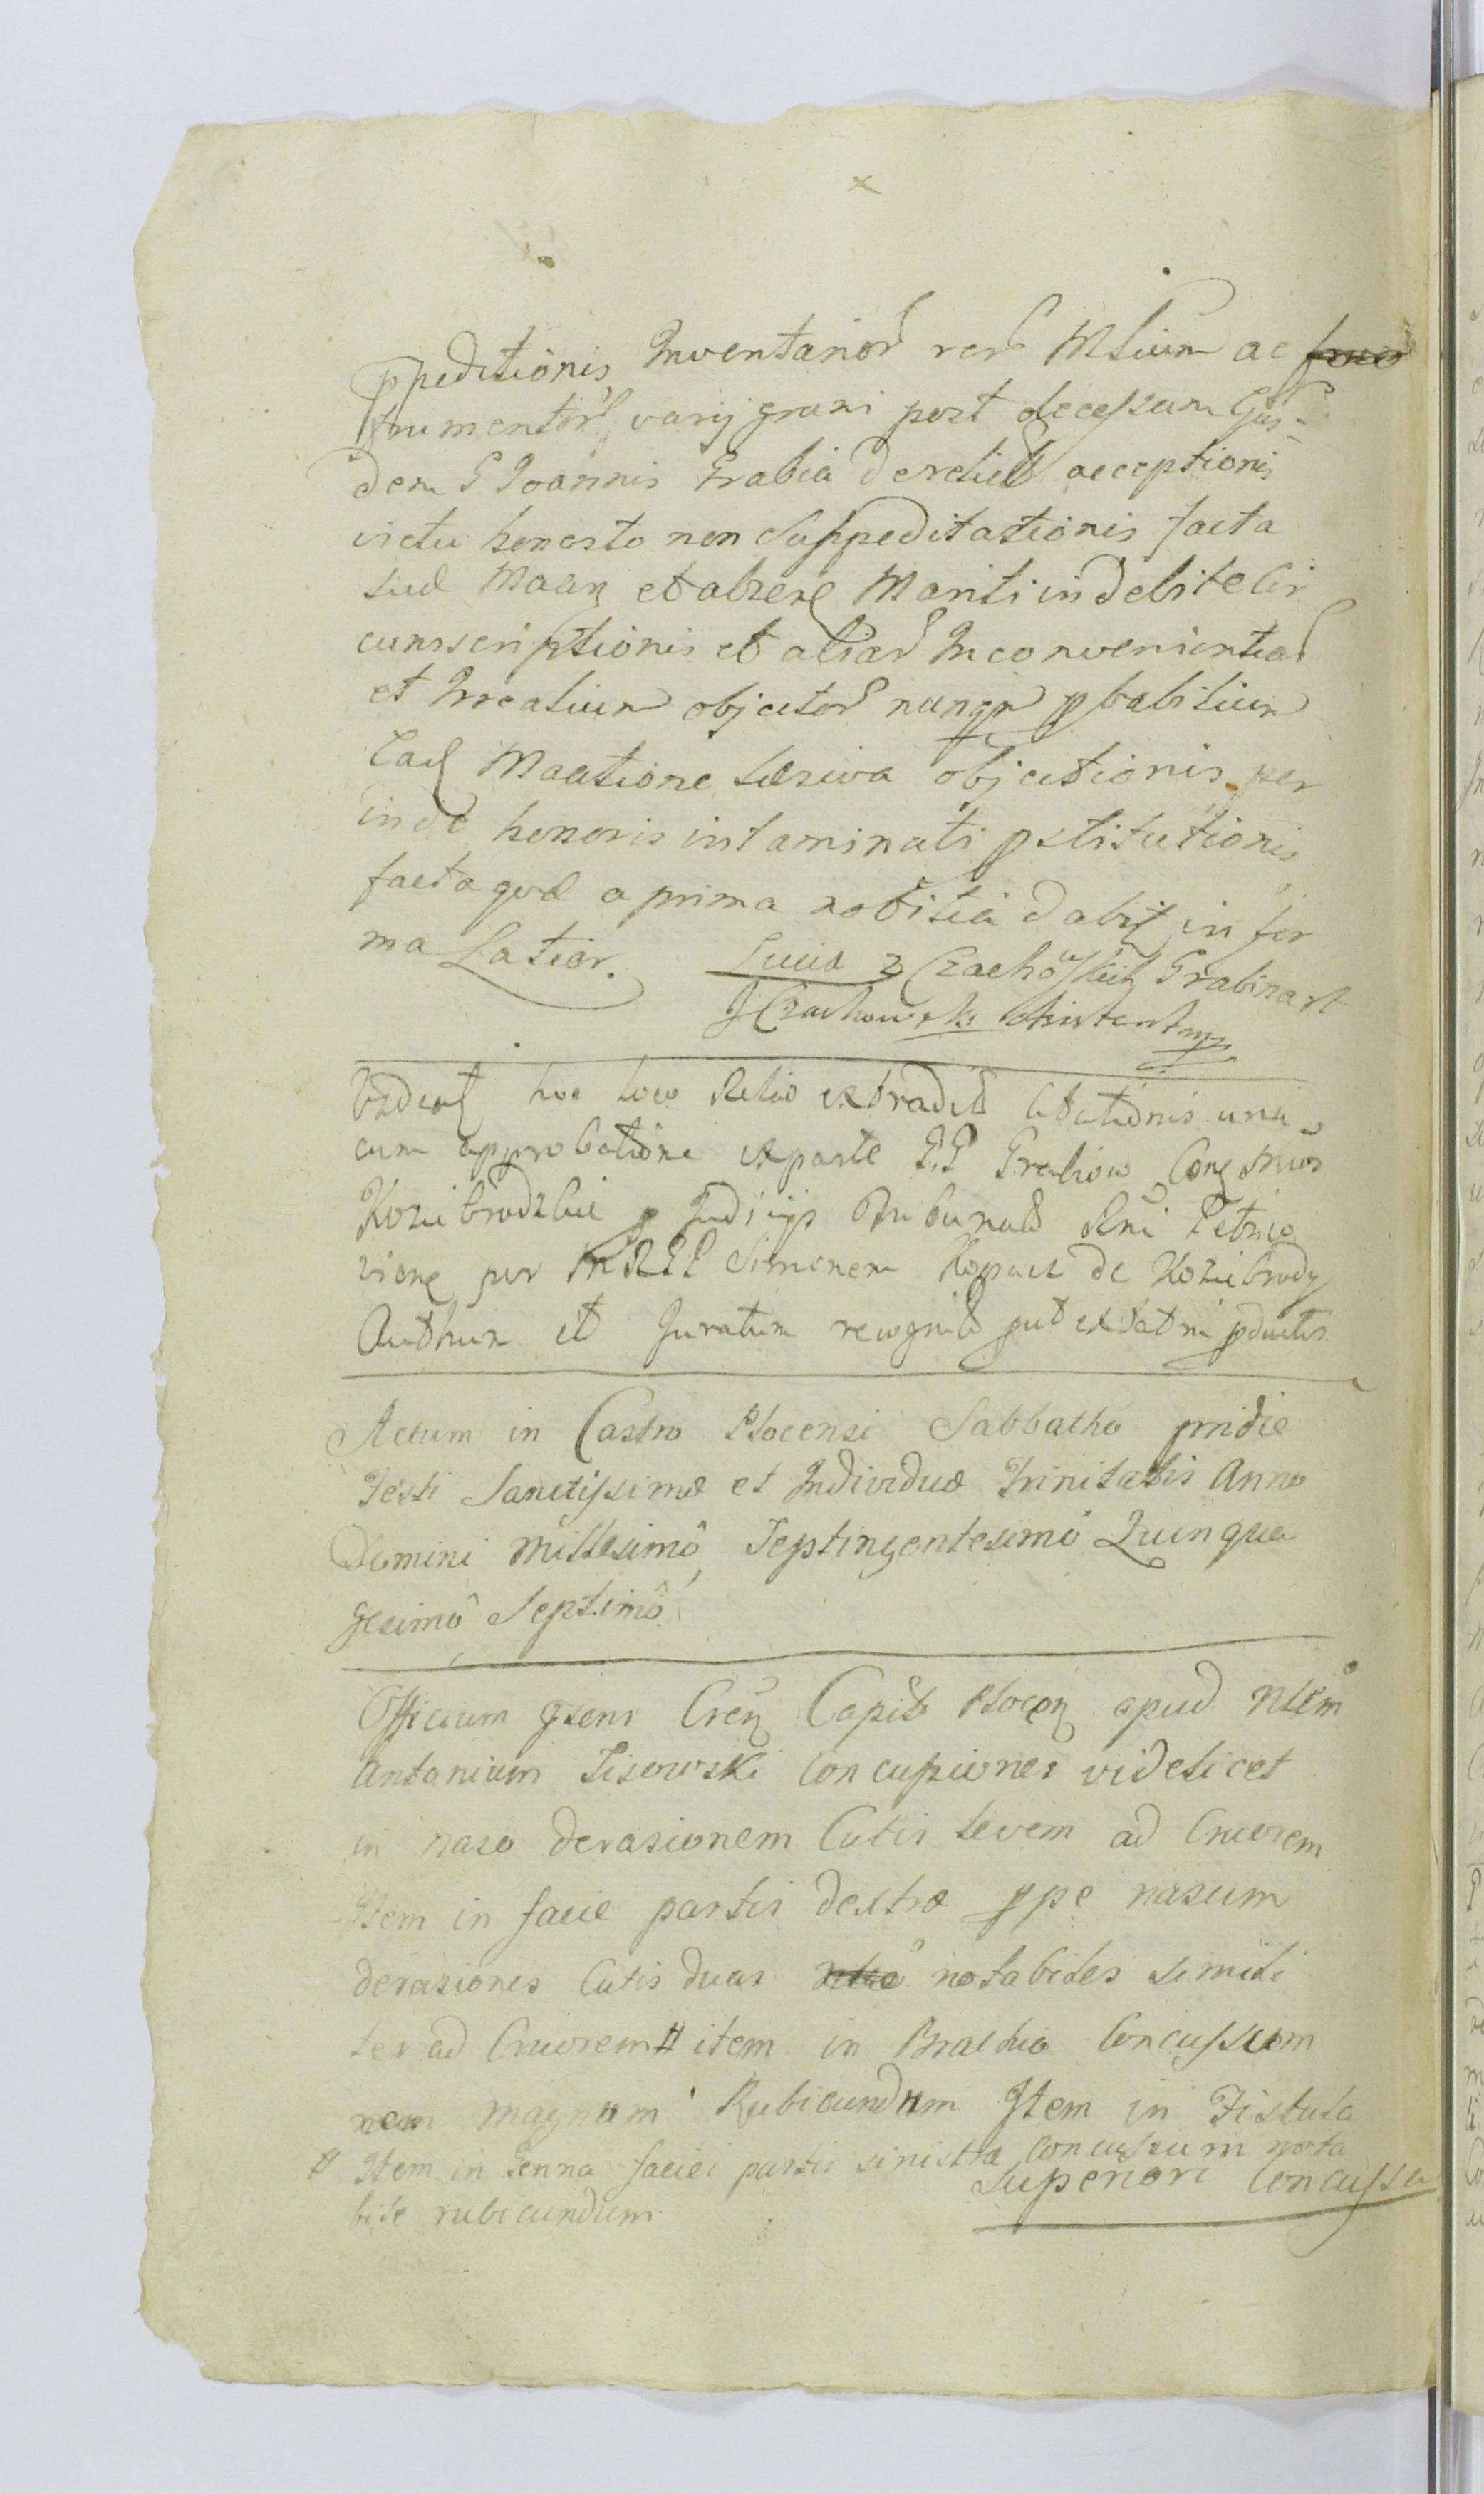 x
ppeditionis Inventarior rer Mlium ac
frumentor varij grani post decessum Ejus=
dem G Joannis Grabia derelict acceptionis
victu honesto non suppeditationis facta
suæ et absene Mariti indebite Cir
cumscriptionis et aliar Inconvenientiar
et Irrealium objector nunqm pbabilium
Ead læsiva objectionis per
inde honoris intaminati pstitutionis
facta quæ a prima notitia dabit in for
ma Latior.
Lucia z Grabina
J Czachowski Assistent mp
hoc loco Relatio extradit Citationis una
cum approbatione exparte
Koziebrodzkie p Judicijs Tribunal Rni Petrico
vien per Simonem de Koziebrody
Authen et Juratum recognit put extat in pductis
Actum in Castro Plocensi Sabbatho pridie
Festi Sanctissimæ et Individuæ Trinitatis Anno
Domini Millesimô Septingentesimô Quinqua
gesimô Septimô
Officium gsens Cren Capit Plocen apud Nlem
Antonium Lisowski Concussiones videlicet
in naso derasionem Cutis levem ad Cruorem
Item in facie partis dextræ ppe nasum
derasiones Cutis duas notabiles simili
ter ad Cruorem # item in Brachio Concussum
magnum Rubicundum Item in Fistula
superiori Concussu
# Item in genna faciei partis sinistra concussum nota
bile rubicundum